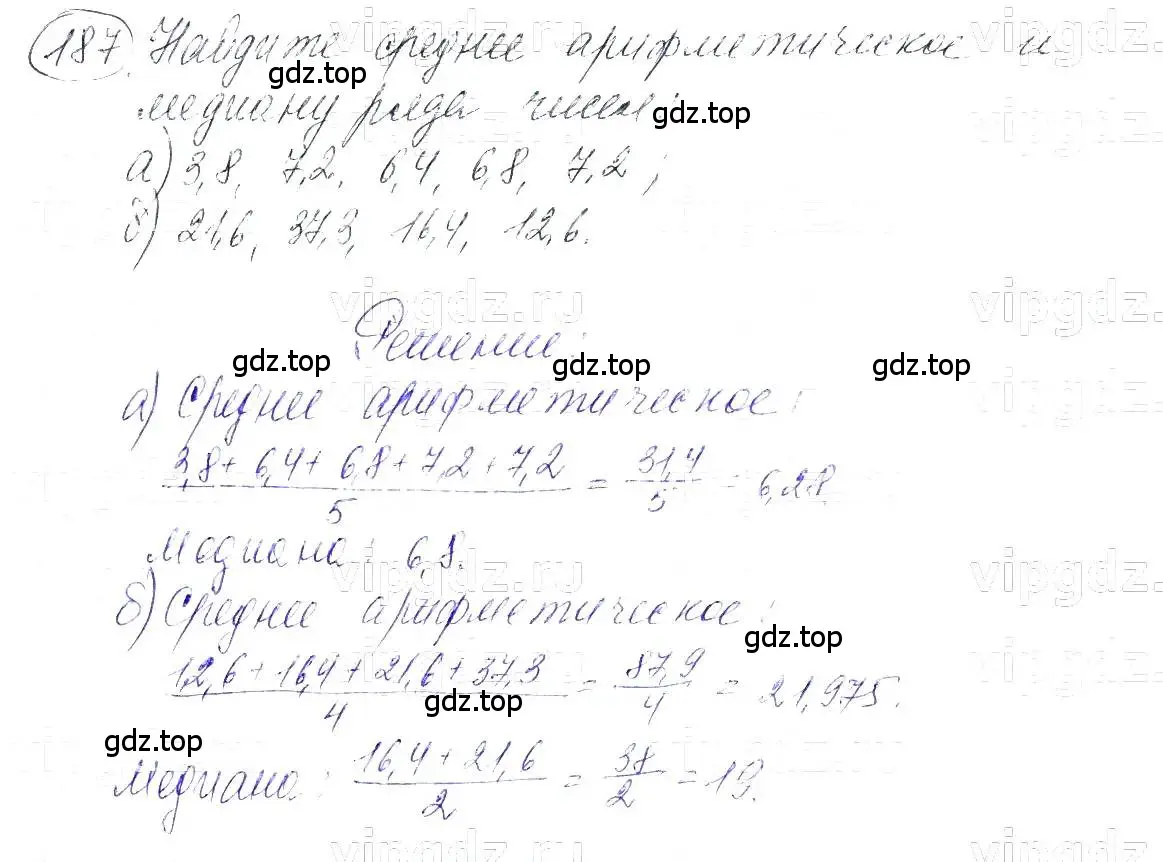 187. Найдите среднее арифметическое и
gdz.top
медиану ряда чисел:
gdz.top
а) 3,8, 7,2, 6,4, 6,8, 7,2;
б) 21,6, 37,3, 16,4, 12,6.
vipgdz.ru
Решение:
gdz.top gdz.top gdz.top
а) Среднее арифметическое:
(3,8 + 6,4 + 6,8 + 7,2 + 7,2)/5 = 31,4/5 = 6,28.
Медиана: 6,8.
vipgdz.ru
б) Среднее арифметическое:
gdz.top
(12,6 + 16,4 + 21,6 + 37,3)/4 = 87,9/4 = 21,975.
gdz.top
gdz.top
Медиана: (16,4 + 21,6)/2 = 38/2 = 19.
vipgdz.ru